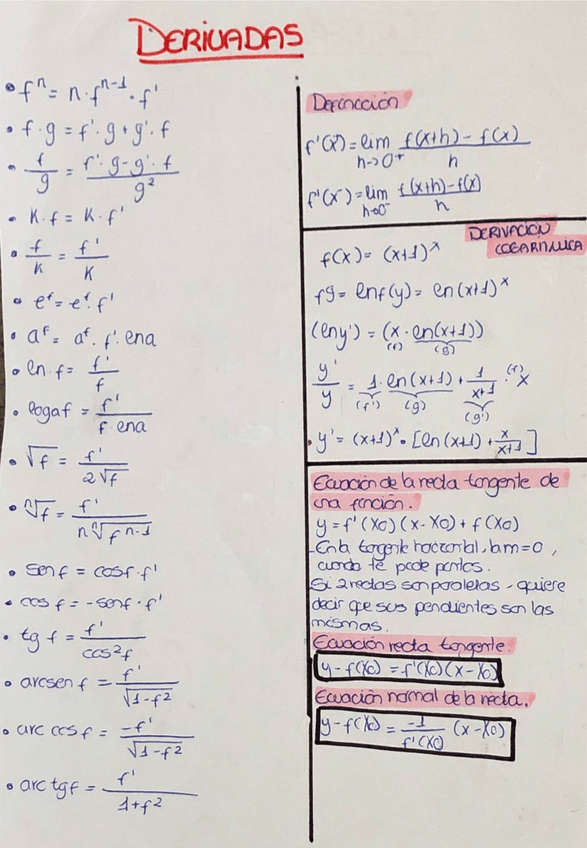 DERIVADAS
• fⁿ = n · fⁿ⁻¹ · f'
• f · g = f' · g + g' · f
• f/g = (f' · g - g' · f)/g²
• K · f = K · f'
• f/K = f'/K
• eᶠ = eᶠ · f'
• aᶠ = aᶠ · f' · ln a
• ln · f = f'/f
• loga f = f'/(f · ln a)
• √f = f'/(2√f)
• ⁿ√f = f'/(n ⁿ√fⁿ⁻¹)
• sen f = cos f · f'
• cos f = -sen f · f'
• tg f = f'/cos² f
• arcsen f = f'/√(1-f²)
• arc cos f = -f'/√(1-f²)
• arc tg f = f'/(1+f²)
Definición
f'(x⁺) = lim h→0⁺ (f(x+h) - f(x))/h
f'(x⁻) = lim h→0⁻ (f(x+h) - f(x))/h
DERIVACIÓN
LOGARÍTMICA
f(x) = (x+1)ˣ
fg = ln f(y) = ln (x+1)ˣ
(ln y') = (x · ln(x+1))
(f) (g)
y'/y = 1 · ln(x+1) + 1/(x+1) · x
(f') (g) (g') (f)
• y' = (x+1)ˣ · [ln(x+1) + x/(x+1)]
Ecuación de la recta tangente de
una función.
y = f'(x0) (x-x0) + f(x0)
En la tangente horizontal, la m=0,
cuando te pide puntos.
Si 2 rectas son paralelas - quiere
decir que sus pendientes son las
mismas.
Ecuación recta tangente.
y - f(x0) = f'(x0) (x-x0)
Ecuación normal de la recta.
y - f(x0) = -1/f'(x0) (x-x0)